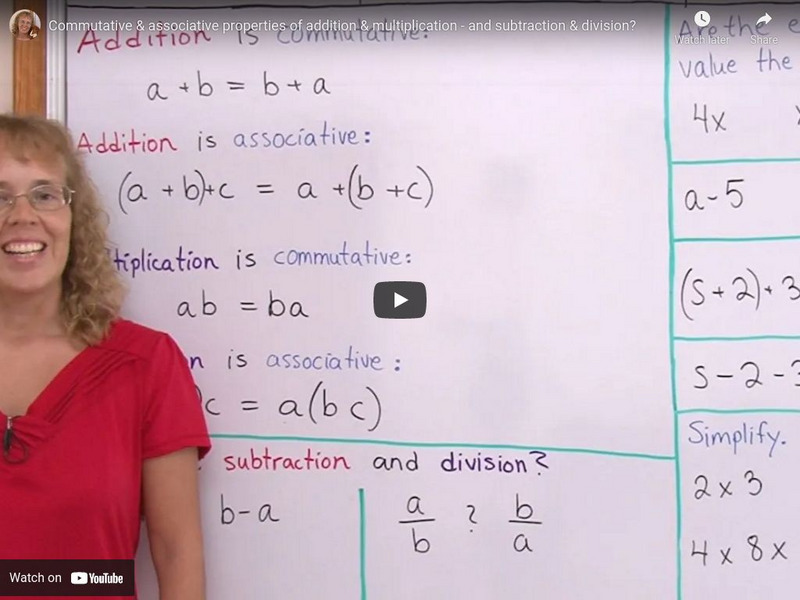 Commutative & associative properties of addition & multiplication - and subtraction & division?
Watch later
Share
Addition is commutative:
a + b = b + a
Addition is associative:
(a + b) + c = a + (b + c)
tiplication is commutative:
ab = ba
n is associative:
c = a(bc)
subtraction and division?
b - a
a
b
?
b
a
Are the e
value the
4x
a - 5
(s + 2) + 3
s - 2 - 3
Simplify.
2 x 3
4 x 8 x
Watch on YouTube